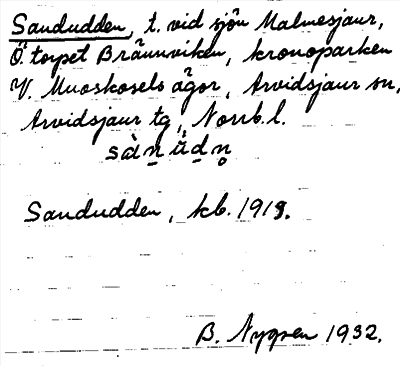 Sandudden, t. vid sjön Malmesjaur,
Ö. torpet Brännviken, kronoparken
V. Muoskosels ägor, Arvidsjaur sn,
Arvidsjaur tg, Norrb. l.
sàn̠ŭd̠n̥
Sandudden, kb. 1919.
B. Nygren 1932.